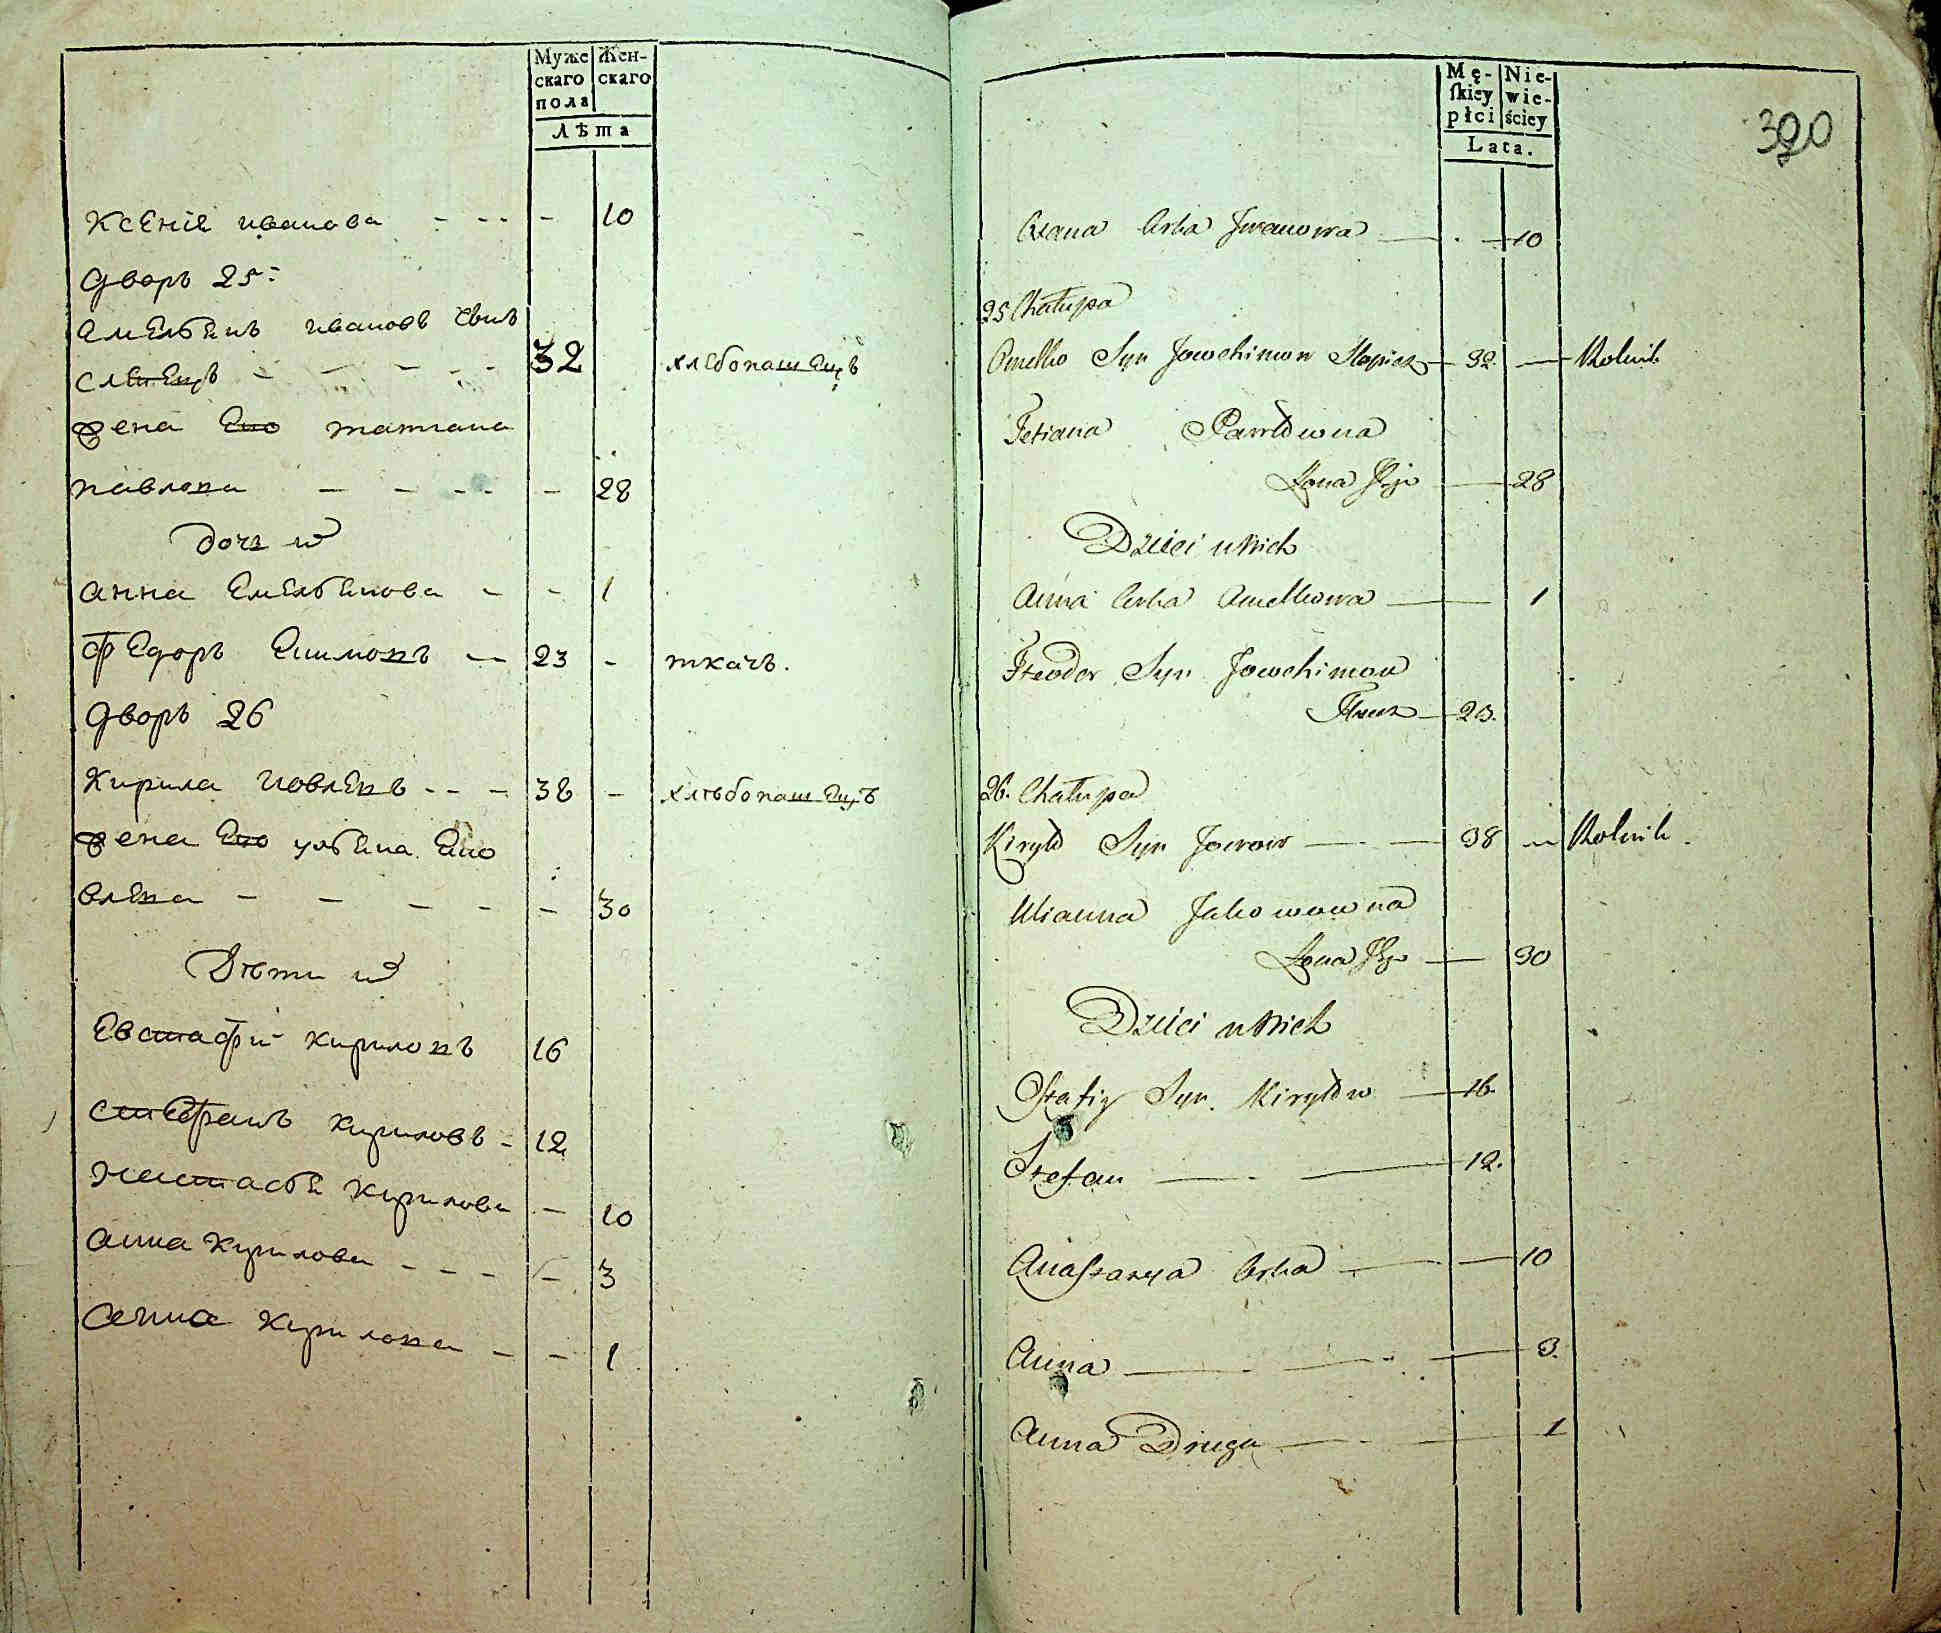 Муже
скаго
пола
Жен-
скаго
Лѣта
Ксения иванова - - - - 10
Дворъ 25:
Амельянъ ивановъ сынъ
слепецъ - - - - - 32 хлебопашецъ
жена Его татиана
павлова - - - - - 28
дочь их
анна Емельянова - - 1
Федоръ Екимовъ - 23 - ткачъ.
Дворъ 26
Кирила иовлевъ - - - 38 - хлѣбопашецъ
жена Его ульяна
влева - - - - - 30
Дѣти их
Евстафий кириловъ 16
Стефанъ кириловъ - 12
Настасья кирилова - 10
анна Кирилова - - - - 3
анна кирилова - - 1
Mę-
skiey
płci
Nie-
wie-
ściey
Lata.
390
Xiana Corka Jwanowa 10
25 Chałupa
Omelko Syn Jowchimow Slepiec 32 Rolnik
Tetiana Pawłowna
Żona Jego 28
Dzieci u Nich
Anna Corka Amelkowa 1
Fteodor Syn Jowchimow
Tkacz 23.
26. Chałupa
Kiryło Syn Jowow 38 Rolnik.
Ulianna Jakowowna
Żona Jego 30
Dzieci u Nich
Ostafiy Syn Kiryłow 16.
Stefan 12.
Anastazya Corka 10
Anna 3.
Anna Druga 1